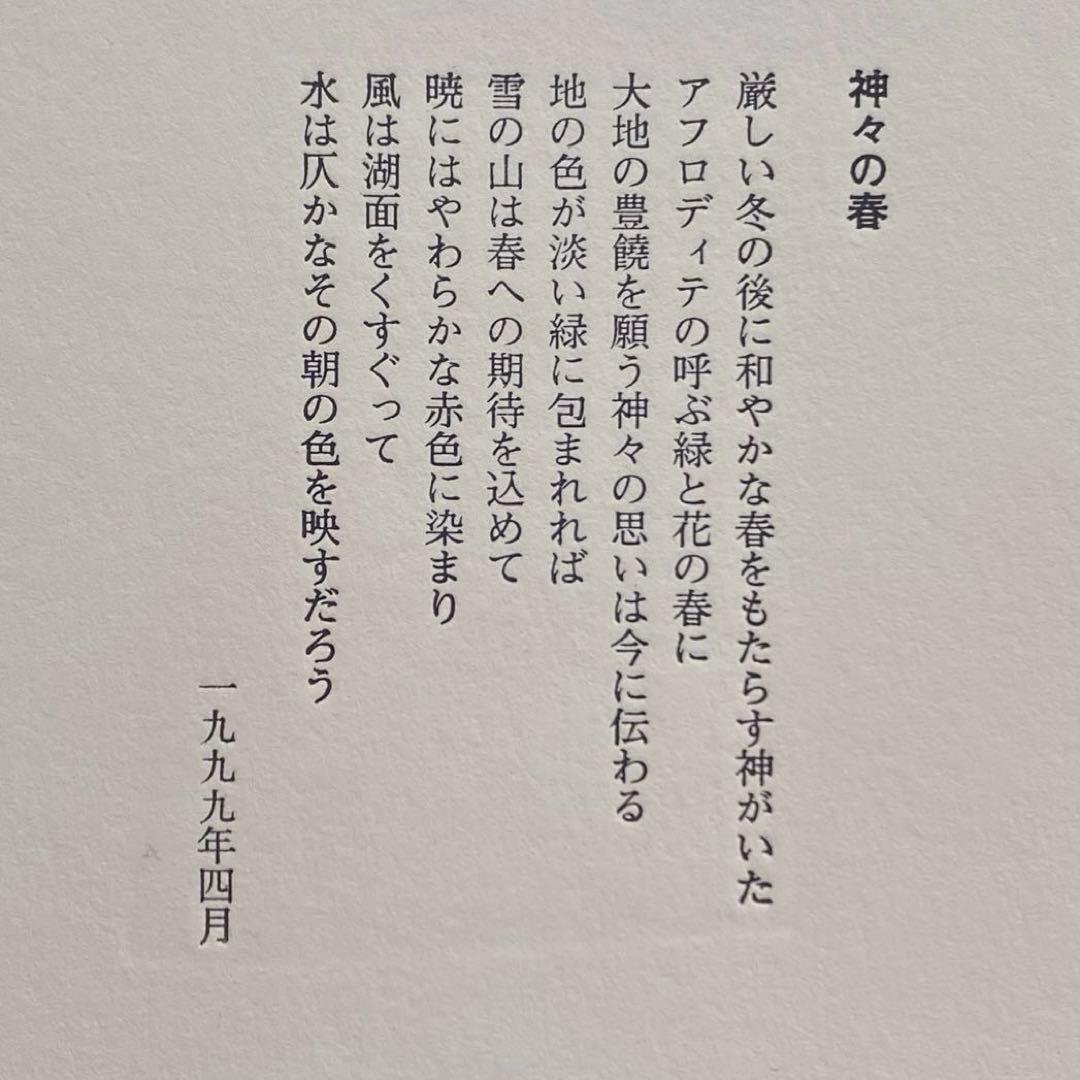 神々の春
厳しい冬の後に和やかな春をもたらす神がいた
アフロディテの呼ぶ緑と花の春に
大地の豊饒を願う神々の思いは今に伝わる
地の色が淡い緑に包まれれば
雪の山は春への期待を込めて
暁にはやわらかな赤色に染まり
風は湖面をくすぐって
水は仄かなその朝の色を映すだろう
一九九九年四月